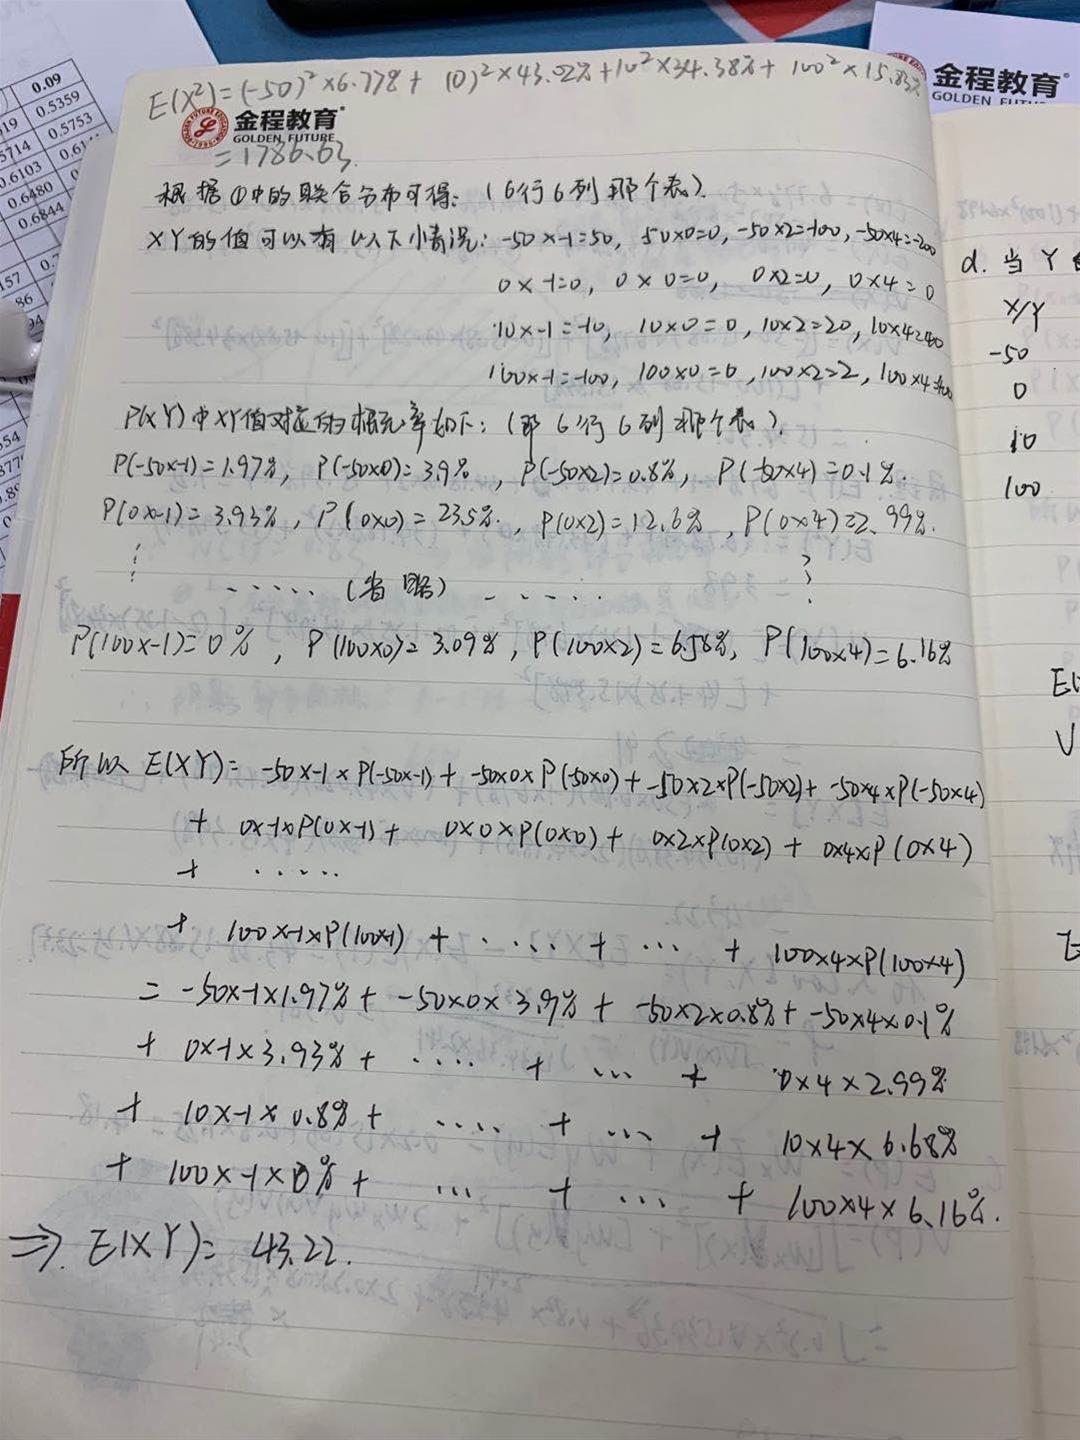 0.09
0.5359
0.5753
5714
0.6103
0.6480
0.6844
E(X²)=(-50)²×6.77%+ (0)²×43.02%+10²×34.38%+ 100²×15.83%
金程教育
GOLDEN FUTURE
=1786.63.
根据①中的联合分布可得:(6行6列那个表).
XY的值可以有以下小情况: -50×-1=50, 50×0=0, -50×2=-100, -50×4=-200
0×-1=0, 0×0=0, 0×2=0, 0×4=0
10×-1=-10, 10×0=0, 10×2=20, 10×4=40
100×-1=-100, 100×0=0, 100×2=2, 100×4=400
P(XY)中XY值对应的概率如下:(那6行6列那个表).
P(-50×-1)=1.97%, P(-50×0)=3.9%, P(-50×2)=0.8%, P(-50×4)=0.1%.
P(0×-1)=3.93%, P(0×0)=23.5%., P(0×2)=12.6%, P(0×4)=2.99%.
..... (省略) .....
P(100×-1)=0%, P(100×0)=3.09%, P(100×2)=6.58%, P(100×4)=6.16%
所以 E(XY)= -50×-1×P(-50×-1)+ -50×0×P(-50×0)+ -50×2×P(-50×2)+ -50×4×P(-50×4)
+ 0×-1×P(0×-1)+ 0×0×P(0×0)+ 0×2×P(0×2)+ 0×4×P(0×4)
+ .....
+ 100×-1×P(100×-1) + ..... + ... + 100×4×P(100×4)
= -50×-1×1.97%+ -50×0×3.9%+ -50×2×0.8%+ -50×4×0.1%
+ 0×-1×3.93%+ .... + ... + 0×4×2.99%
+ 10×-1×0.8%+ .... + ... + 10×4×6.68%
+ 100×-1×0%+ ... + ... + 100×4×6.16%.
⇒. E(XY)= 43.22.
金程教育
GOLDEN FUTURE
d. 当 Y
X/Y
-50
0
10
100